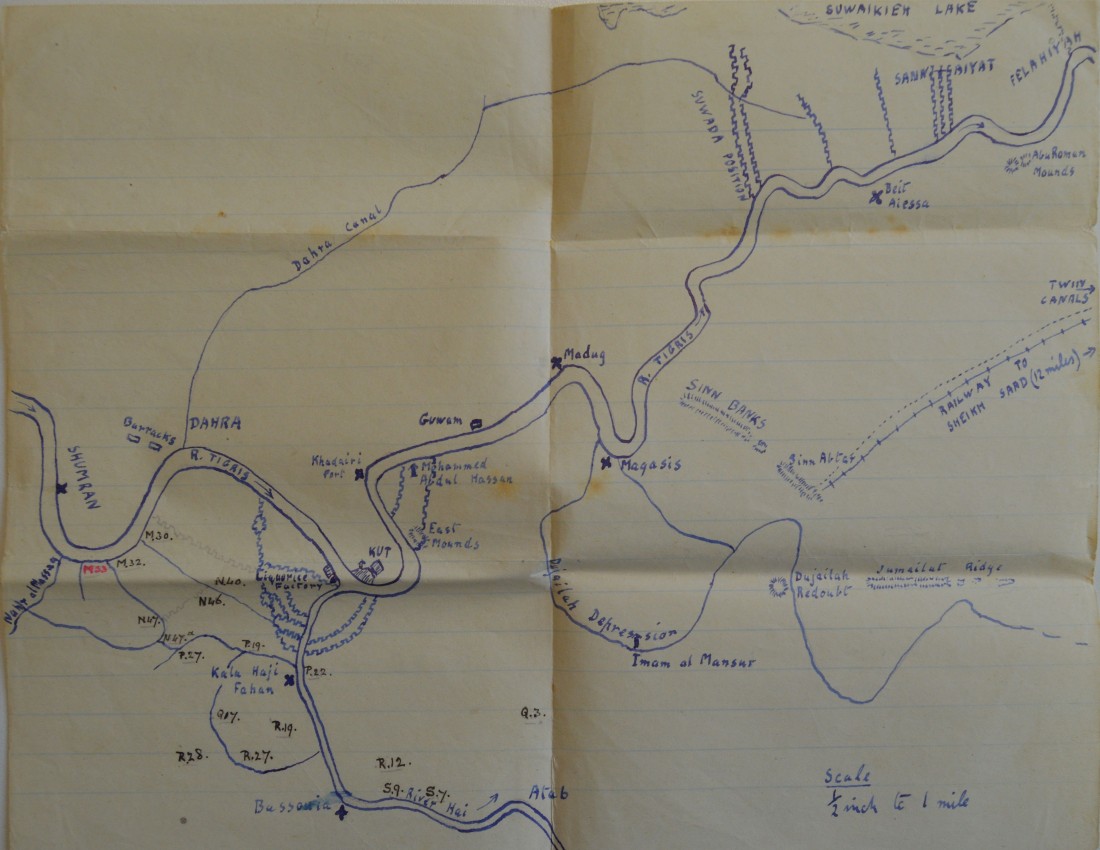 SUWAIKIEH LAKE
FELAHIYAH
SANNAIYAT
SUWADA POSITION
Abu Roman
Mounds
Beit
Aiessa
Dahra Canal
TWIN
CANALS
R. TIGRIS
Madug
RAILWAY TO
SHEIKH SAAD (12 miles)
SINN BANKS
Sinn Abtar
Guwam
DAHRA
Barracks
R. TIGRIS
SHUMRAN
Khadairi
Fort
Mohammed
Abdul Hassan
Magasis
East
Mounds
M.30.
KUT
M.32.
M.33
Nahr al Massag
Liquorice
Factory
N.40.
N.46.
N.47.
N.47.a
P.27.
P.19.
P.22.
Dujailah Depression
Dujailah
Redoubt
Jumailat Ridge
Imam al Mansur
Kala Haji
Fahan
Q.17.
R.19.
Q.3.
R.28.
R.27.
R.12.
S.9.
S.7.
River Hai
Atab
Bussouia
Scale
1/2 inch to 1 mile